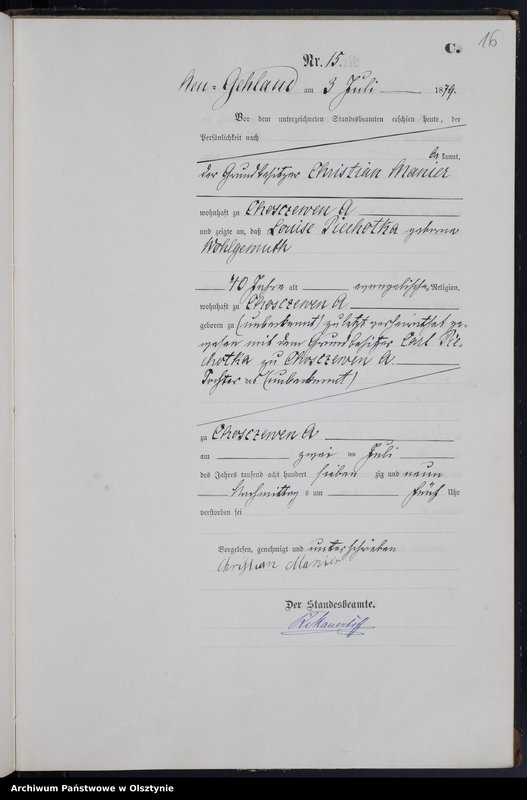 16
C.
Nr. 15.
Neu-Gehland am 3 Juli 1879.
Vor dem unterzeichneten Standesbeamten erschien heute, der
Persönlichkeit nach
be kannt,
der Grundbesitzer Christian Manier
wohnhaft zu Choszewen A
und zeigte an, daß Louise Piechotka geborene
Wohlgemuth
70 Jahre alt evangelischer Religion,
wohnhaft zu Choszewen A
geboren zu (unbekannt) zuletzt verheirathet ge-
wesen mit dem Grundbesitzer Carl Pie-
chotka zu Choszewen A
Tochter des (unbekannt)
zu Choszewen A
am zwei ten Juli
des Jahres tausend acht hundert sieben zig und neun
Nachmittag s um fünf Uhr
verstorben sei
Vorgelesen, genehmigt und unterschrieben
Christian Manier
Der Standesbeamte.
Archiwum Państwowe w Olsztynie